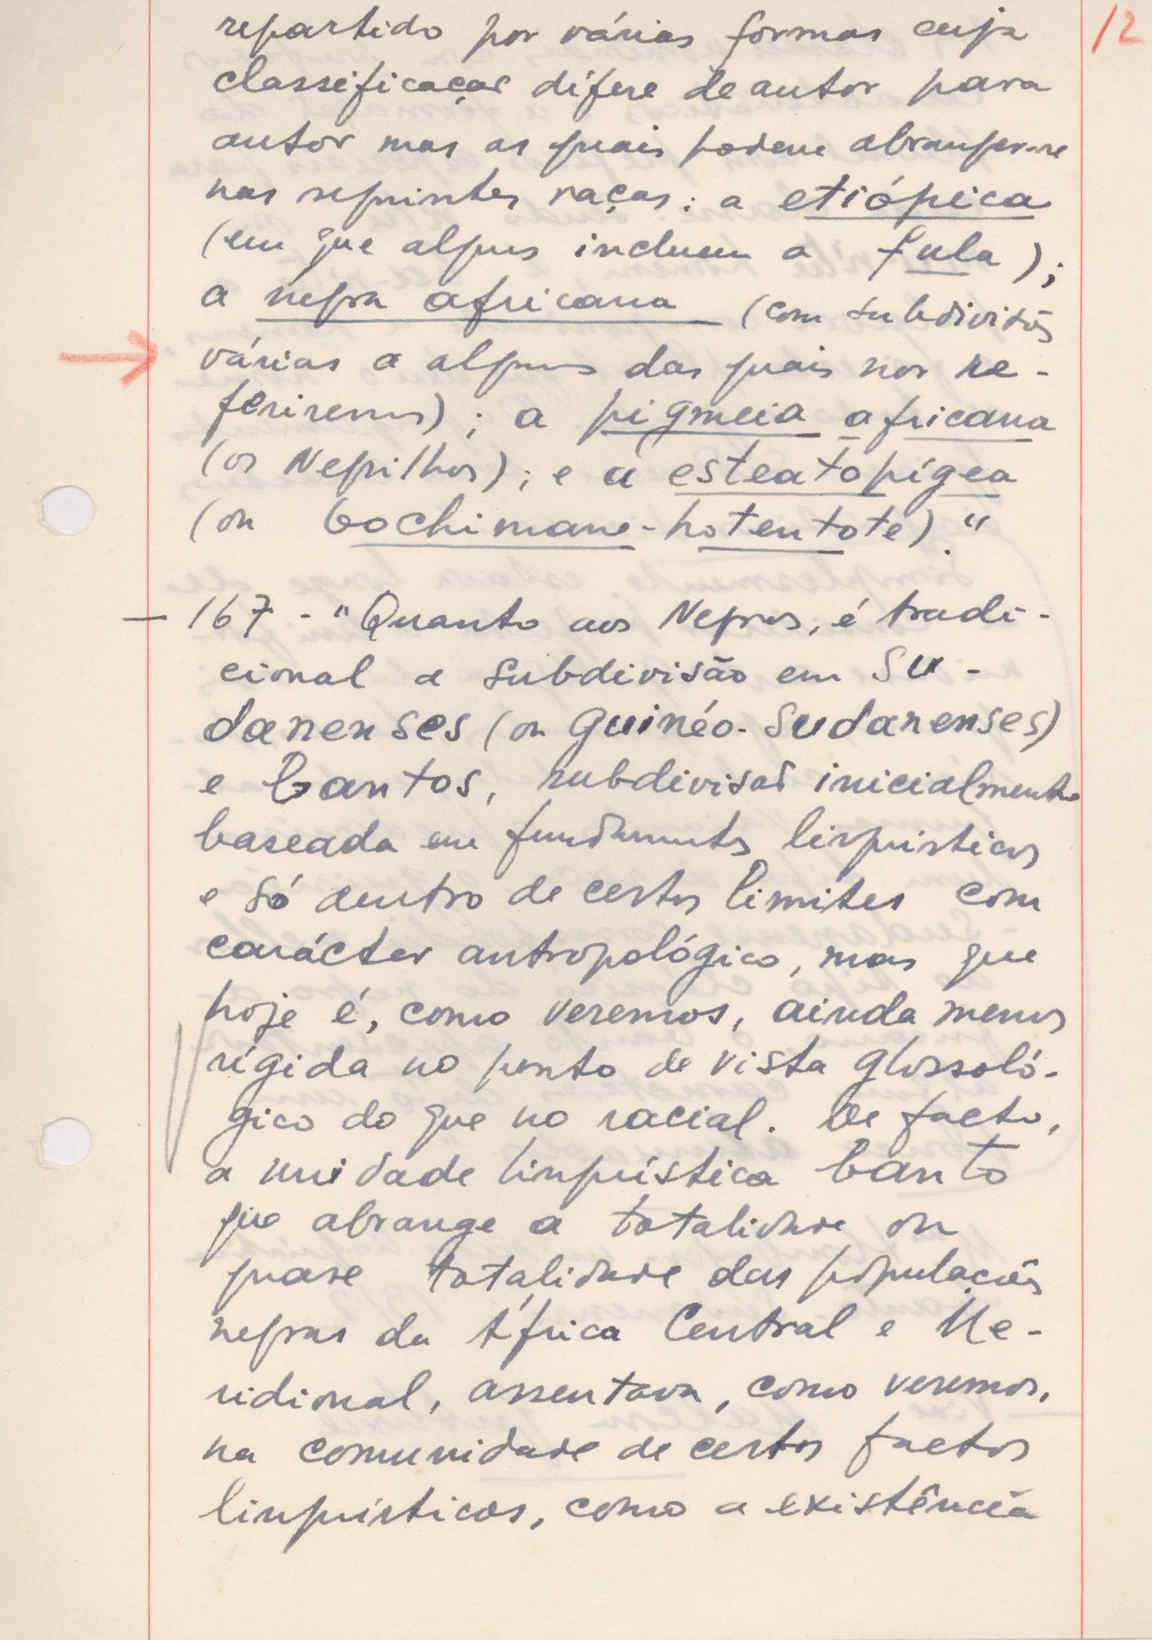 12
repartido por várias formas cuja
classificação difere de autor para
autor mas as quais podem abranger-se
nas seguintes raças: a etiópica
(em que alguns incluem a fula);
a negra africana (com subdivisões
várias a algumas das quais nos re-
feriremos); a pigmeia africana
(os Negrilhos); e a esteatopígea
(ou bochimane-hotentote)."
— 167 - "Quanto aos Negros, é tradi-
cional a subdivisão em Su-
daneses (ou Guinéo-Sudaneses)
e Bantos, subdivisão inicialmente
baseada em fundamentos linguisticos
e só dentro de certos limites com
carácter antropológico, mas que
hoje é, como veremos, ainda menos
rígida no ponto de vista glossoló-
gico do que no racial. De facto,
a unidade linguística banto
que abrange a totalidade ou
quase totalidade das populações
negras da África Central e Me-
ridional, assentava, como veremos,
na comunidade de certos factos
linguísticos, como a existência